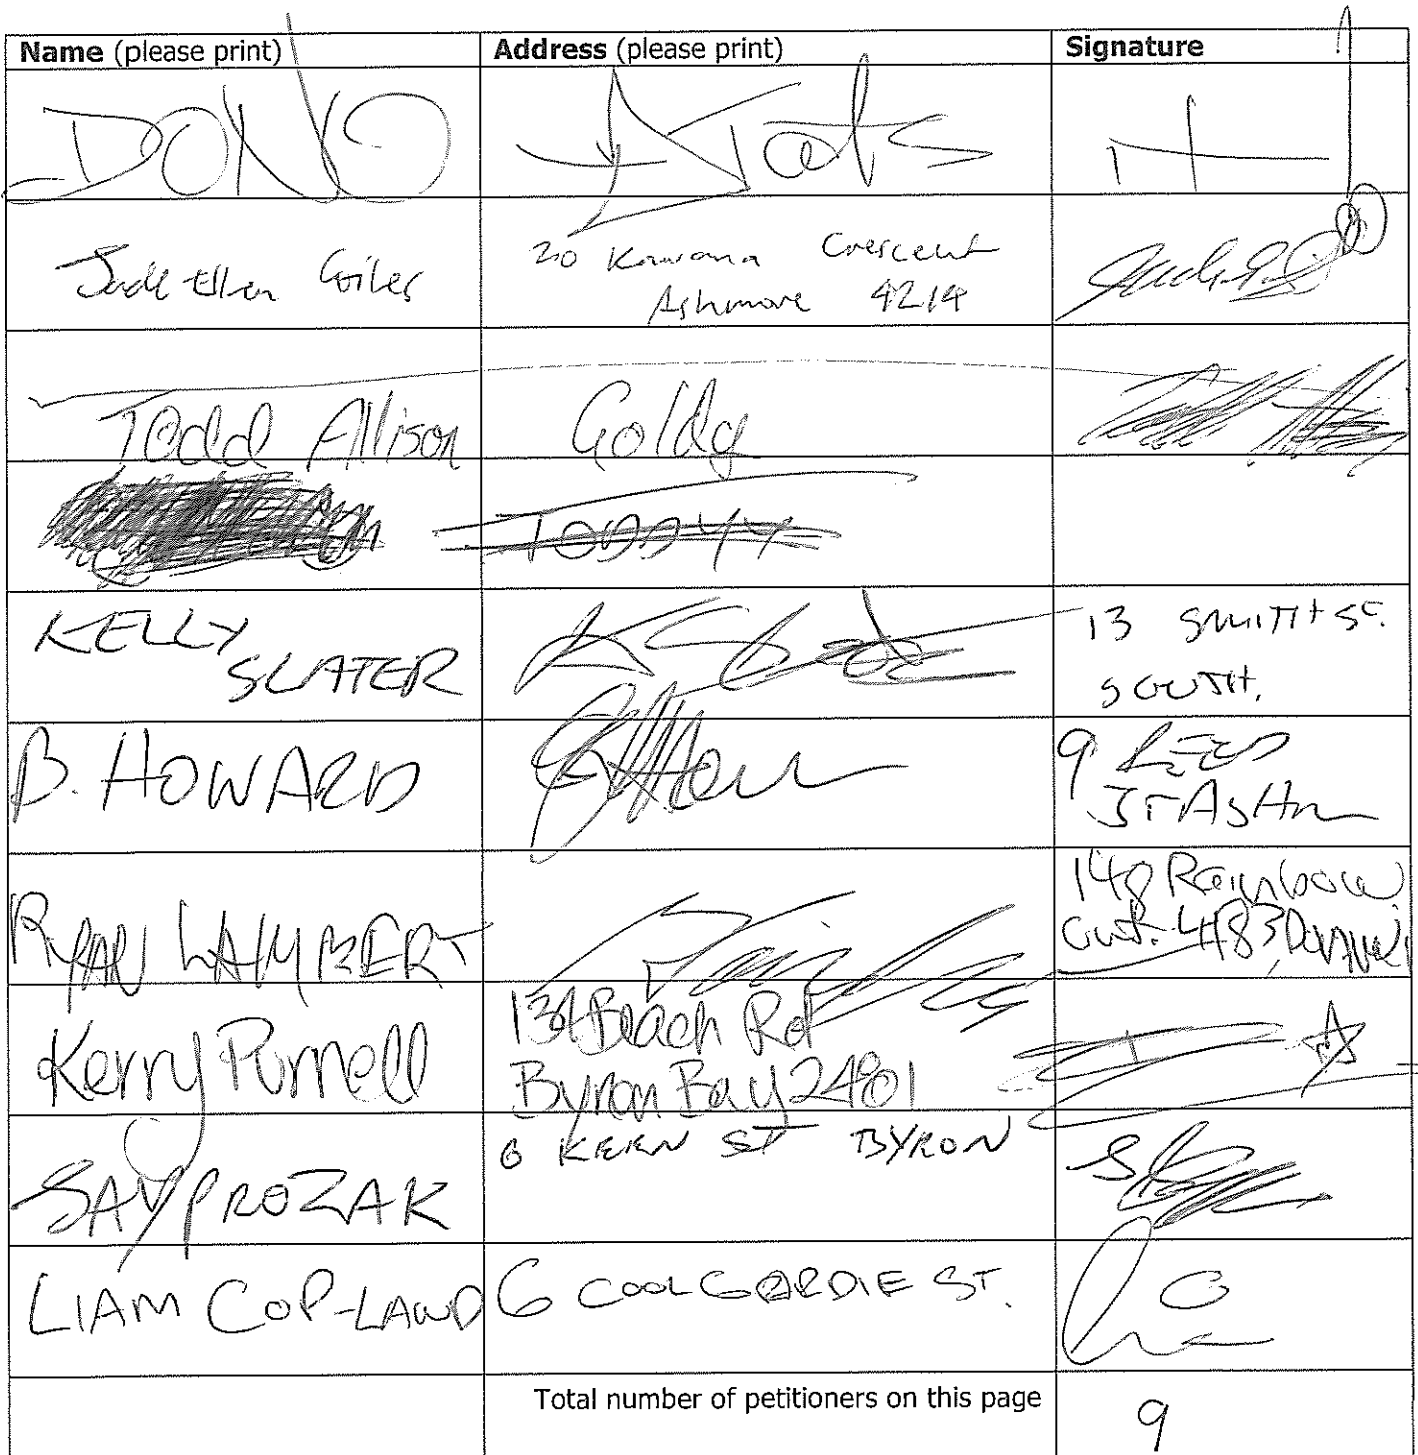 Name (please print) Address (please print) Signature
DONO
Giles 20 Kawana Crescent
Ashmore 4214
Todd Allison Goldy
TODDYY
KELLY 13 SMITH ST.
SLATER SOUTH.
B. HOWARD 9 REED
ST ASHM
RYAN LAMBERT 148 Rainbow
Kerry Purnell 134 Beach Rd
Byron Bay 2481
SAYPROZAK 6 KERN ST BYRON
LIAM COP-LAND 6 COOLGARDIE ST.
Total number of petitioners on this page 9